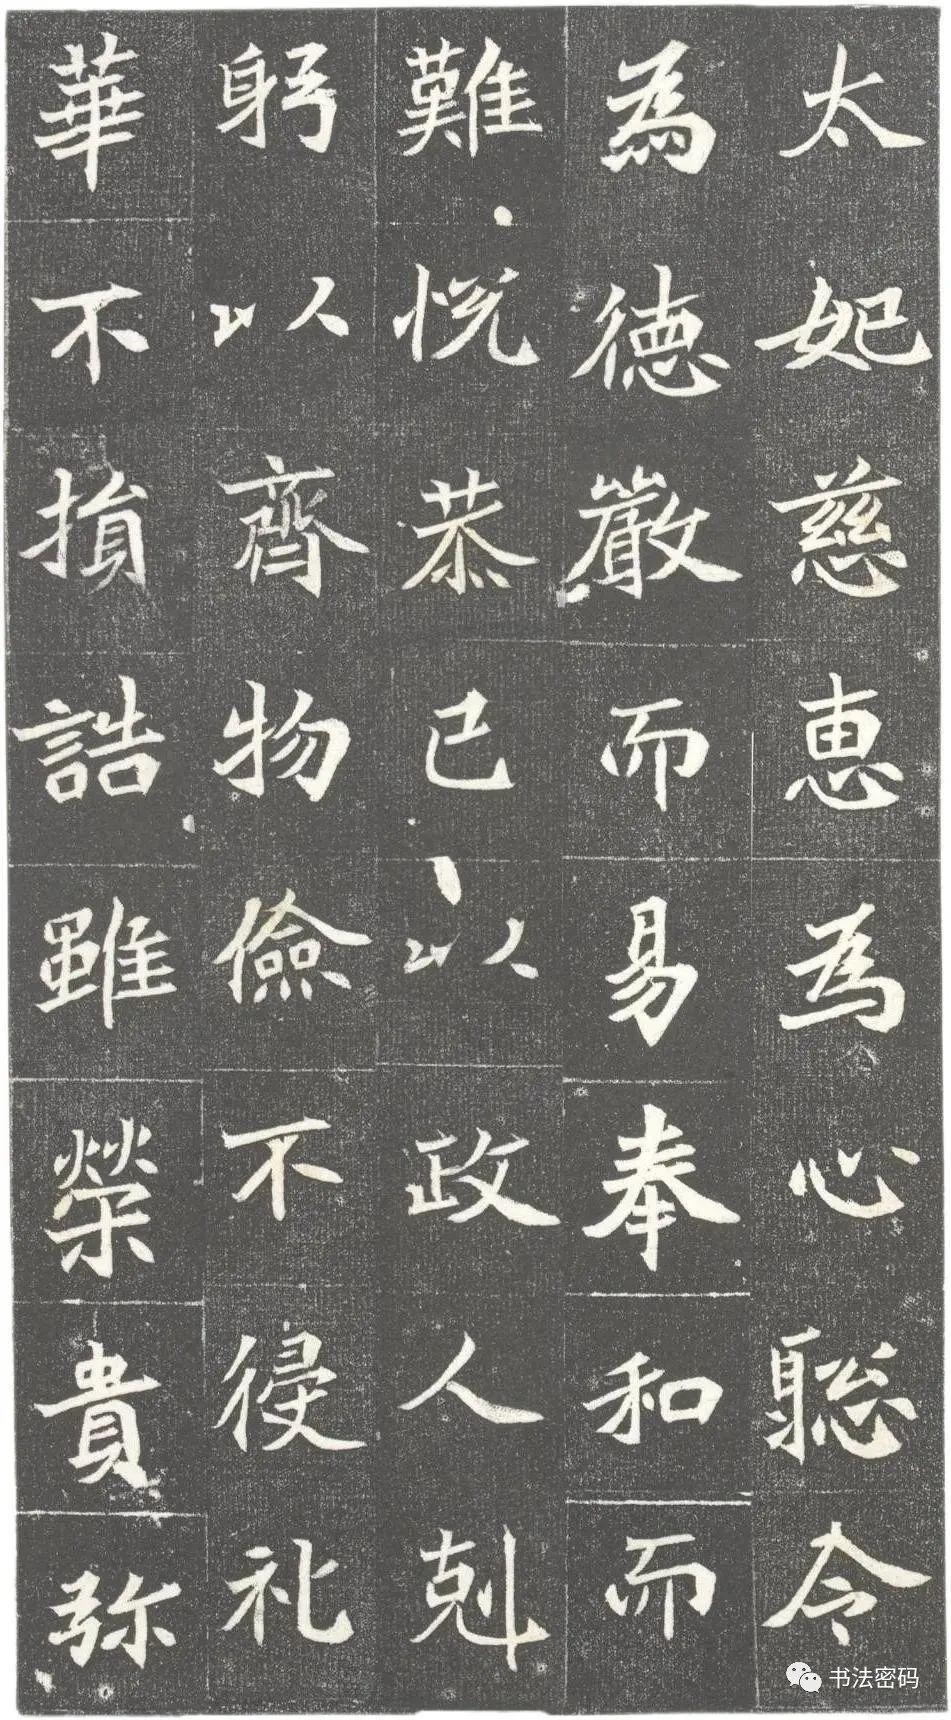 太妃慈恵為心聡令
為徳嚴而易奉和而
難悦恭己以政人剋
躬以齊物儉不侵礼
華不損誥雖榮貴弥
书法密码